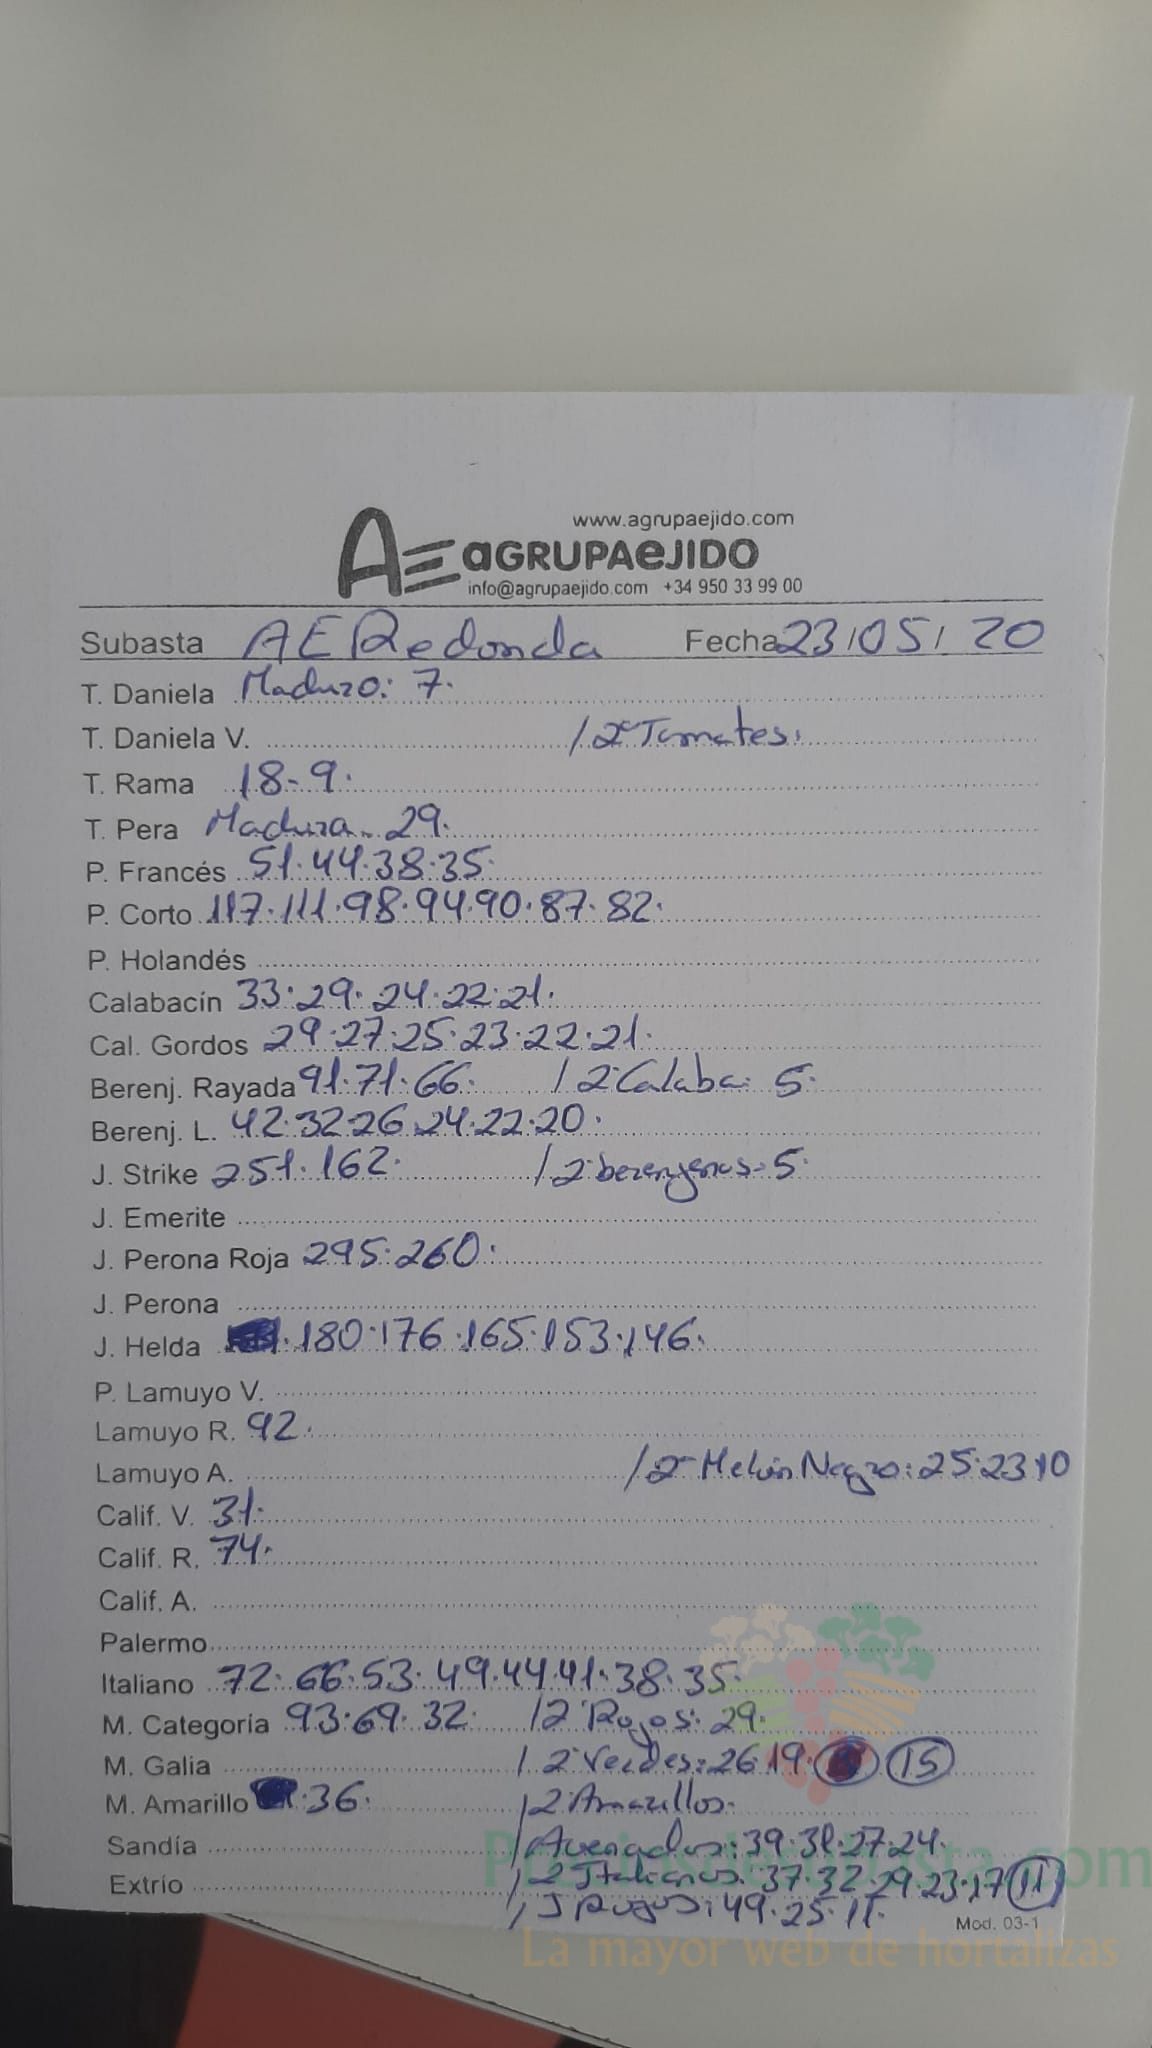 www.agrupaejido.com
AE aGRUPAeJIDO
info@agrupaejido.com +34 950 33 99 00
Subasta AE Redonda Fecha 23/05/20
T. Daniela Maduro: 7.
T. Daniela V. / 2ª Tomates:
T. Rama 18-9.
T. Pera Madura. 29.
P. Francés 51.44.38.35.
P. Corto 117.111.98.94.90.87.82.
P. Holandés
Calabacín 33.29.24.22.21.
Cal. Gordos 29.27.25.23.22.21.
Berenj. Rayada 91.71.66. / 2ª Calaba: 5.
Berenj. L. 42.32.26.24.22.20.
J. Strike 251.162. / 2ª berenjenas: 5.
J. Emerite
J. Perona Roja 295.260.
J. Perona
J. Helda 180.176.165.153.146.
P. Lamuyo V.
Lamuyo R. 92.
Lamuyo A. / 2ª Melón Negro: 25.23.10
Calif. V. 31.
Calif. R. 74.
Calif. A.
Palermo
Italiano 72.66.53.49.44.41.38.35.
M. Categoría 93.69.32. / 2ª Rojos: 29.
M. Galia / 2ª Verdes: 26.19. 15
M. Amarillo 36. / 2ª Amarillos.
Sandía / Averiados: 39.31.27.24.
Extrío / 2ª Italianos: 37.32.29.23.17 11
/ J Rojos: 49.25.11.
Mod. 03-1
La mayor web de hortalizas